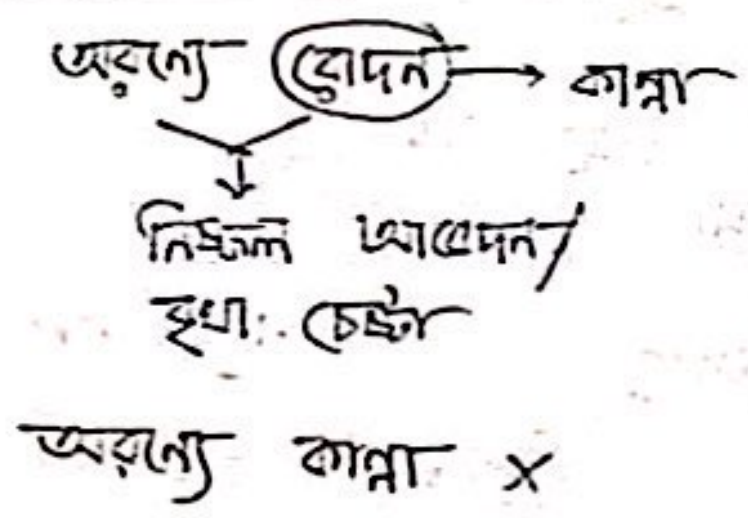 অরণ্যে রোদন → কান্না
নিষ্ফল আবেদন/
বৃথা চেষ্টা
অরণ্যে কান্না ×